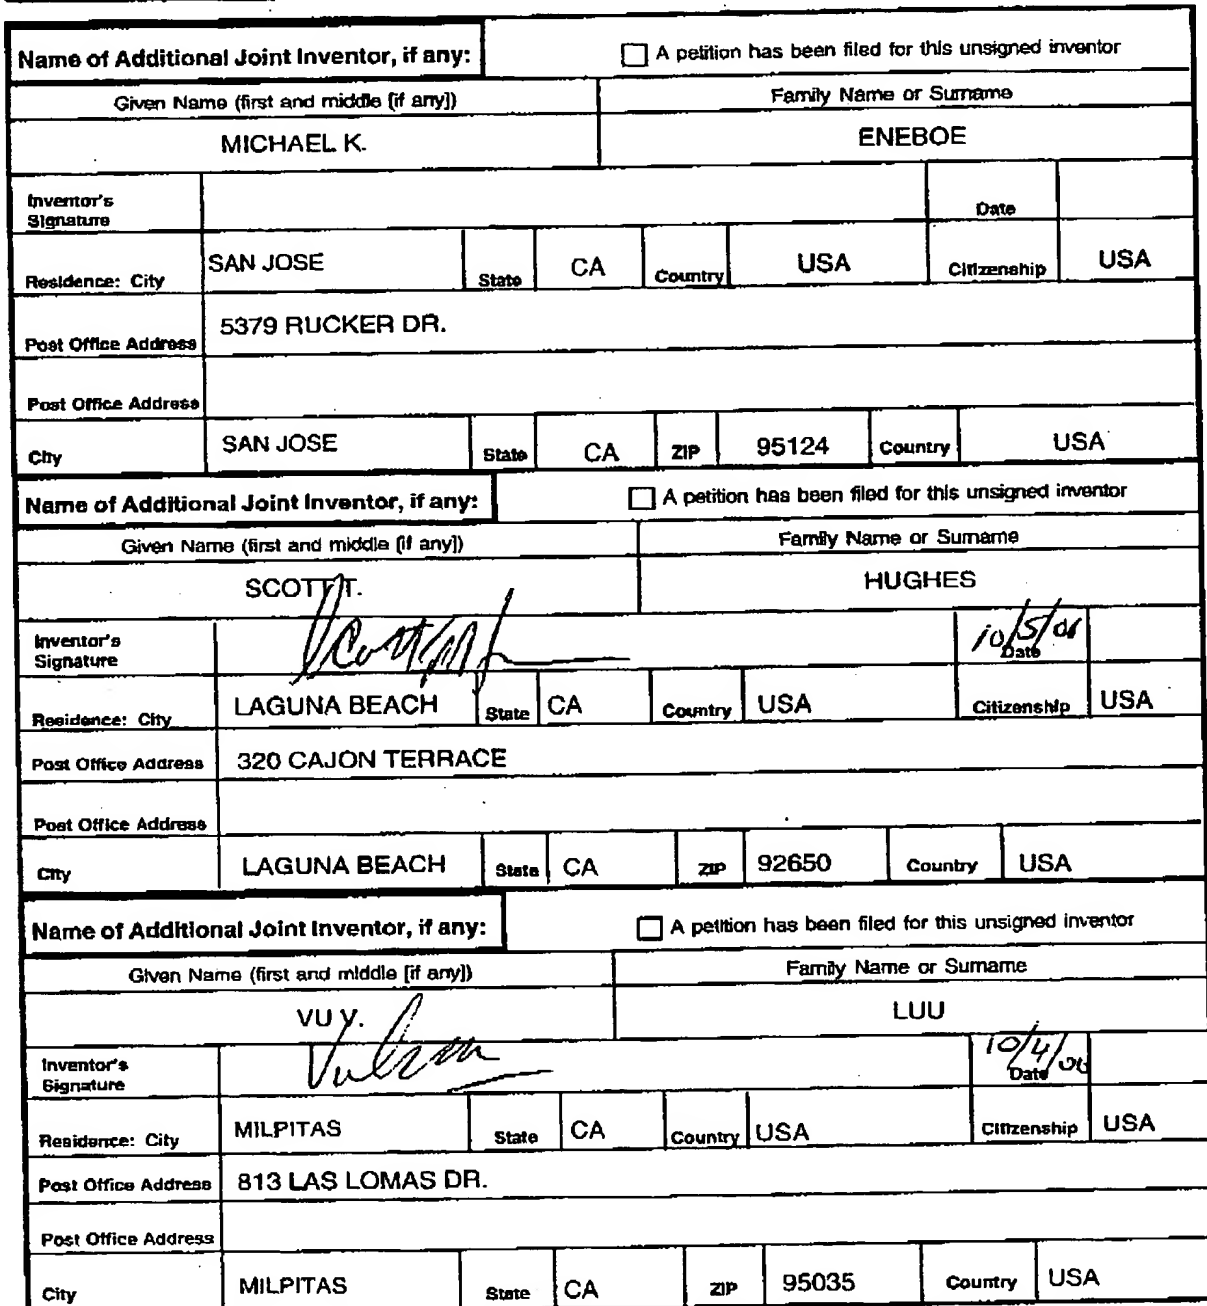 Name of Additional Joint Inventor, if any: ☐ A petition has been filed for this unsigned inventor
Given Name (first and middle [if any]) Family Name or Surname
MICHAEL K. ENEBOE
Inventor's Signature Date
Residence: City SAN JOSE State CA Country USA Citizenship USA
Post Office Address 5379 RUCKER DR.
Post Office Address
City SAN JOSE State CA ZIP 95124 Country USA
Name of Additional Joint Inventor, if any: ☐ A petition has been filed for this unsigned inventor
Given Name (first and middle [if any]) Family Name or Surname
SCOTT T. HUGHES
Inventor's Signature Date 10/5/01
Residence: City LAGUNA BEACH State CA Country USA Citizenship USA
Post Office Address 320 CAJON TERRACE
Post Office Address
City LAGUNA BEACH State CA ZIP 92650 Country USA
Name of Additional Joint Inventor, if any: ☐ A petition has been filed for this unsigned inventor
Given Name (first and middle [if any]) Family Name or Surname
VU V. LUU
Inventor's Signature Date 10/4/
Residence: City MILPITAS State CA Country USA Citizenship USA
Post Office Address 813 LAS LOMAS DR.
Post Office Address
City MILPITAS State CA ZIP 95035 Country USA